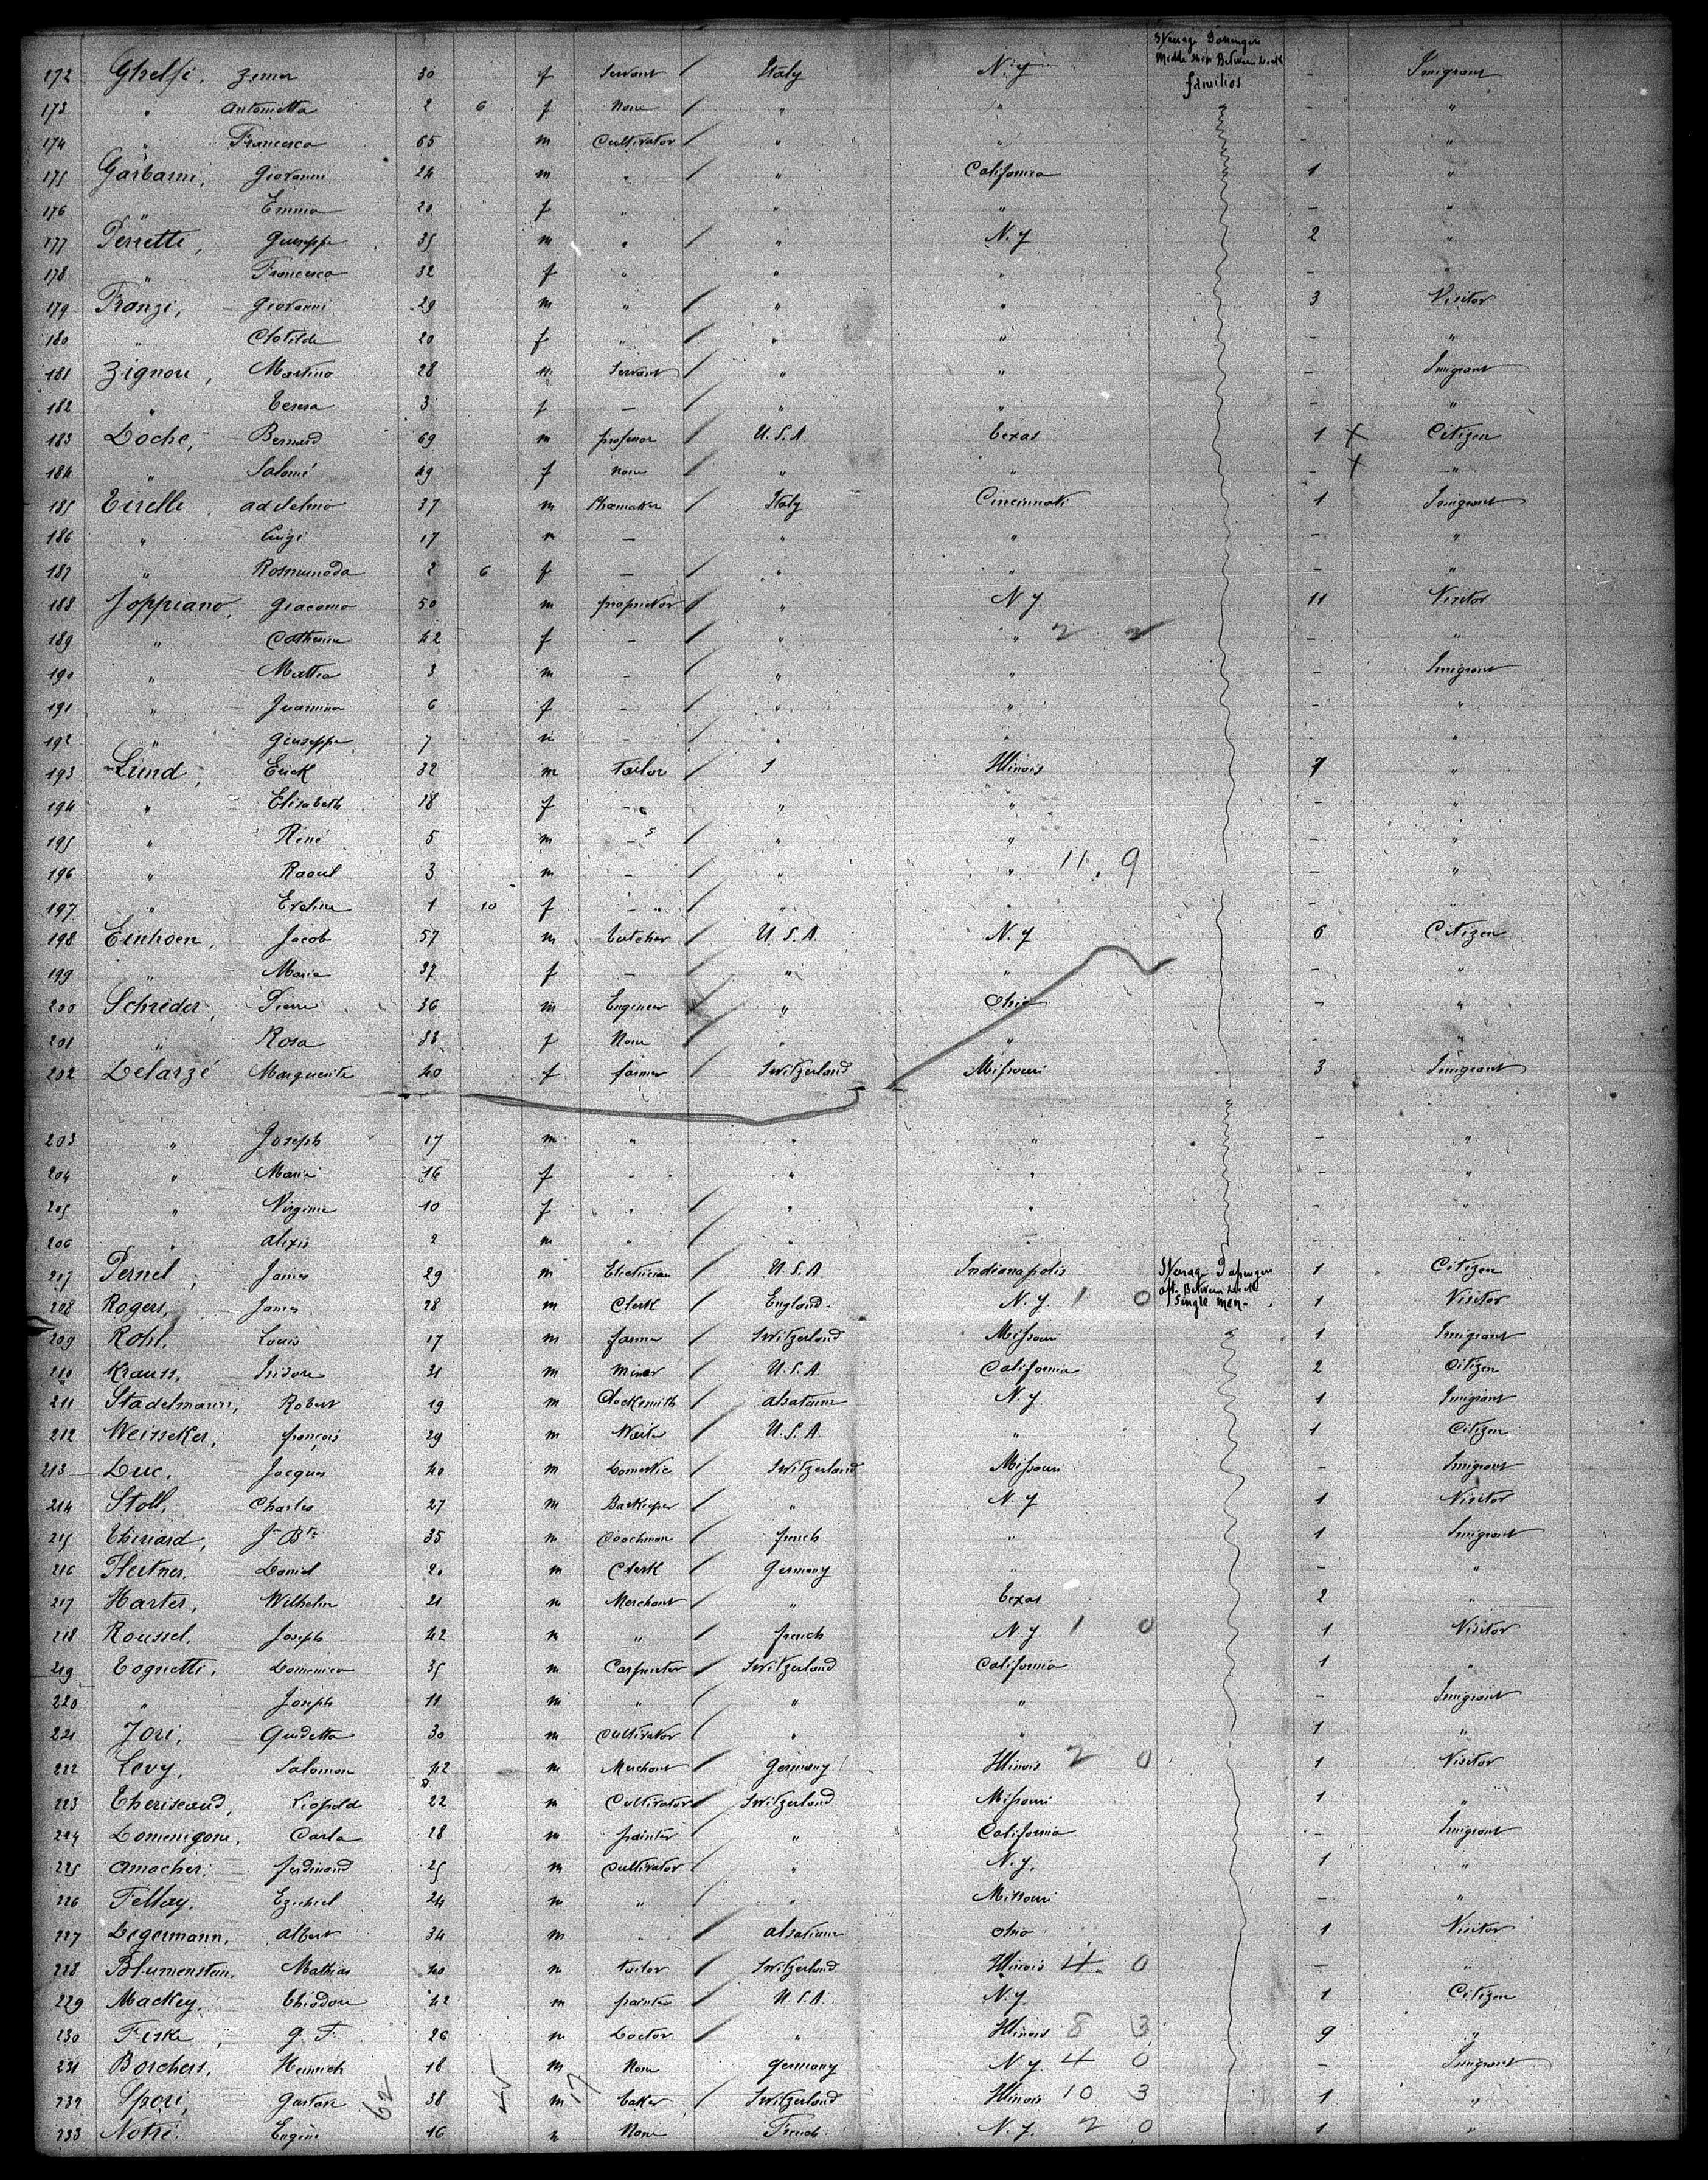 Steerage Passengers
Middle ship Between deck
families
172 Ghelfi, Zemer 30 f Servant Italy N.Y - Imigrant
173 " Antonietta 2 6 f None " " - "
174 " Francesco 65 m Cultivator " " - "
175 Garbarni, Giovanni 24 m " " California 1 "
176 " Emma 20 f " " " - "
177 Perrette, Guiseppe 35 m " " N.Y 2 "
178 " Francesca 32 f " " " - "
179 Franzi, Giovanni 29 m " " " 3 Visitor
180 " Clotilde 20 f " " " - "
181 Zignou, Martino 28 m Servant " " - Imigrant
182 " Teresa 3 f - " " - "
183 Doche, Bernard 69 m professor U.S.A Texas 1 X Citizen
184 " Salomé 49 f None " " - X "
185 Tirelli addelmo 37 m Shoemaker Italy Cincinnati 1 Imigrant
186 " Luigi 17 m - " " - "
187 " Rosmunoda 2 6 f - " " - "
188 Joppiano, Giacomo 50 m proprietor " N.Y. 11 Visitor
189 " Catherine 42 f - " " 2 2 - "
190 " Mattea 3 m - " " - Imigrant
191 " Juanina 6 f - " " - "
192 " Giuseppe 7 m - " " - "
193 Lund, Erick 32 m Tailor Illinois 7 "
194 " Elisabeth 18 f - " " - "
195 " Réné 5 m - " " - "
196 " Raoul 3 m - " " 11. 9 - "
197 " Eveline 1 10 f - " " - "
198 Einhoen, Jacob 57 m butcher U.S.A. N.Y 6 Citizen
199 " Maria 37 f - " " - "
200 Schreder, Pierre 36 m Engineer " Ohio - "
201 " Rosa 38 f None " " - "
202 Delarzé Marguerite 40 f farmer Switzerland Missouri 3 Imigrant
203 " Joseph 17 m " " " - "
204 " Maria 16 f " " " - "
205 " Virginie 10 f " " " - "
206 " alexis 2 m " " " - "
Steerage Passengers
aft. Between deck
Single men.
207 Pernel, James 29 m Electrician U.S.A Indianapolis 1 Citizen
208 Rogers, James 28 m Clerk England N.Y. 1 0 1 Visitor
209 Rohl, Louis 17 m farmer Switzerland Missouri 1 Imigrant
210 Krauss, Isidore 31 m Miner U.S.A. California 2 Citizen
211 Stadelmann, Robert 19 m Clocksmith alsatian N.Y. 1 Imigrant
212 Weisseker, françois 29 m Waiter U.S.A. " 1 Citizen
213 Luc, Jacques 40 m Domestic Switzerland Missouri - Imigrant
214 Stoll, Charles 27 m Barkeeper " N.Y 1 Visitor
215 Ehinard, J Bte 35 m Coachman french " 1 Imigrant
216 Fleitner, Daniel 20 m Clerk Germany " - "
217 Harter, Wilhelm 21 m Merchant " Texas 2 "
218 Roussel, Joseph 42 m " french N.Y. 1 0 1 Visitor
219 Tognetti, Domenico 35 m Carpenter Switzerland California 1 "
220 " Joseph 11 m " " " - Imigrant
221 Jori, Quidetta 30 m Cultivator " " 1 "
222 Levy, Salomon 42 m Merchant Germany Illinois 2 0 1 Visitor
223 Theriseaud, Léopold 22 m Cultivator Switzerland Missouri 1 "
224 Domenigoni, Carlo 28 m painter " California - Imigrant
225 amacher, ferdinand 25 m Cultivator " N.Y. 1 "
226 Fellay, Ezichiel 24 m " " Missouri - "
227 Degermann, albert 34 m " alsatian Ohio 1 Visitor
228 Blumenstein, Mathias 40 m tailor Switzerland Illinois 4. 0 - "
229 Mackey, Théodore 42 m painter U.S.A. N.Y. 1 Citizen
230 Fiske, G. F. 26 m Doctor " Illinois 8 3 9 "
231 Borchers, Heinrich 18 m None Germany N.Y. 4 0 - Imigrant
232 Spori, Gustave 38 m baker Switzerland Illinois 10 3 1 "
233 Notré Eugène 16 m None French N.Y. 2 0 1 "
62 17